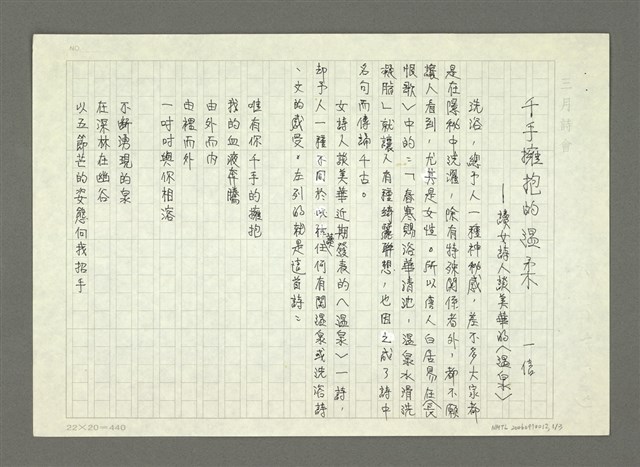 三月詩會
千手擁抱的溫柔
——讀女詩人談美華的〈溫泉〉
一信
洗浴，總予人一種神秘感，差不多大家都
是在隱秘中洗濯，除有特殊關係者外，都不願
讓人看到，尤其是女性。所以唐人白居易在〈長
恨歌〉中的：「春寒賜浴華清池，溫泉水滑洗
凝脂」就讓人有種綺麗聯想，也因之成了詩中
名句而傳誦千古。
女詩人談美華近期發表的〈溫泉〉一詩，
却予人一種不同於以往任何有關溫泉或洗浴詩
、文的感受。左列的就是這首詩：
唯有你千手的擁抱
我的血液奔騰
由外而內
由裡而外
一吋吋與你相溶
不斷湧現的泉
在深林在幽谷
以五節芒的姿態向我招手
22×20=440